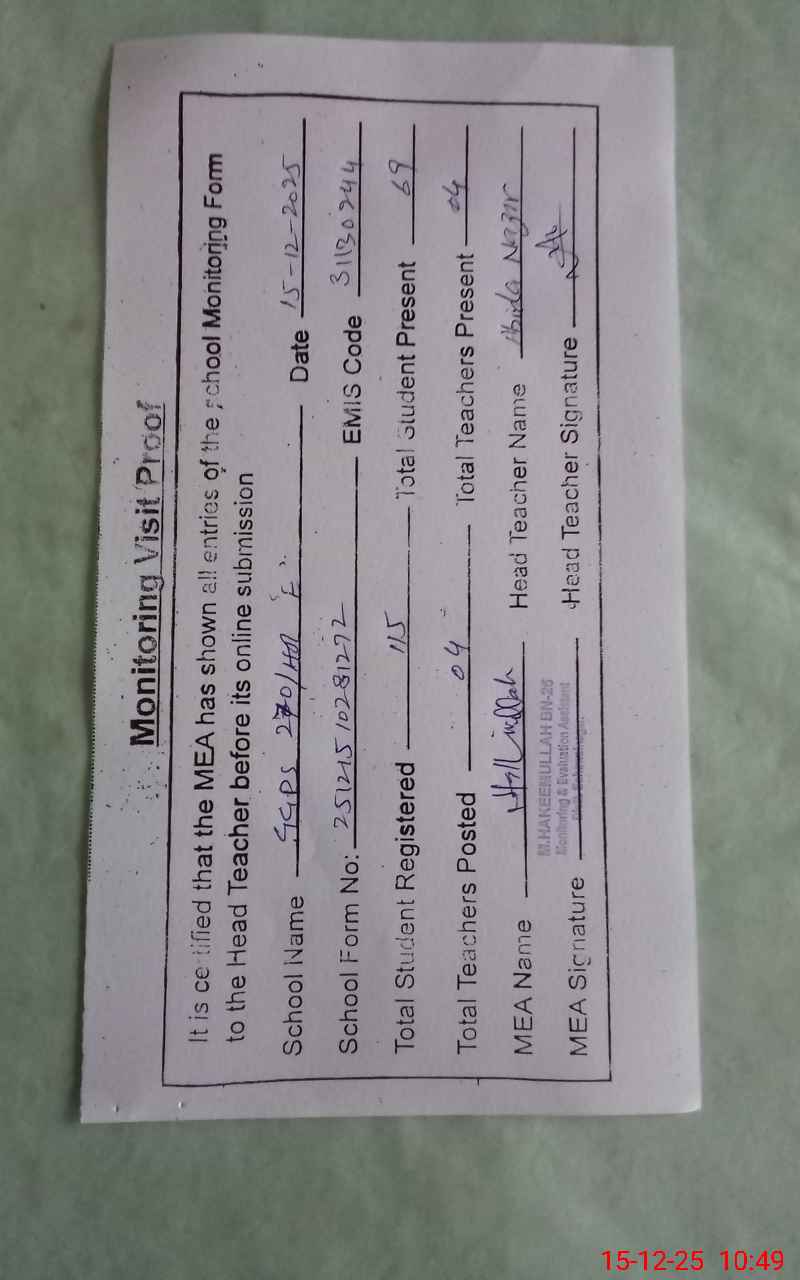 Monitoring Visit Proof
It is certified that the MEA has shown all entries of the school Monitoring Form
to the Head Teacher before its online submission
School Name GGPS 270/HR "E" Date 15-12-2025
School Form No: 25121510281272 EMIS Code 31130244
Total Student Registered 115 Total Student Present 69
Total Teachers Posted 04 Total Teachers Present 04
MEA Name Head Teacher Name Abida Nazir
M.HAKEEMULLAH BN-26
Monitoring & Evaluation Assistant
MEA Signature Head Teacher Signature
15-12-25 10:49